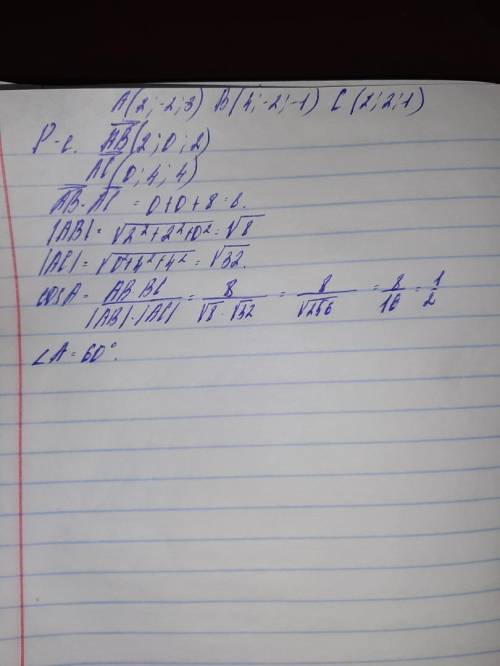 A(2;-2;3) B(4;-2;-1) C(2;2;1)
Р-с. AB(2;0;2)
AC(0;4;4)
AB·AC = 0+0+8=8.
|AB|=√2²+2²+0²=√8
|AC|=√0+4²+4²=√32.
cosA= AB·BC / |AB|·|AC| = 8 / √8·√32 = 8 / √256 = 8/16 = 1/2
∠A=60°.